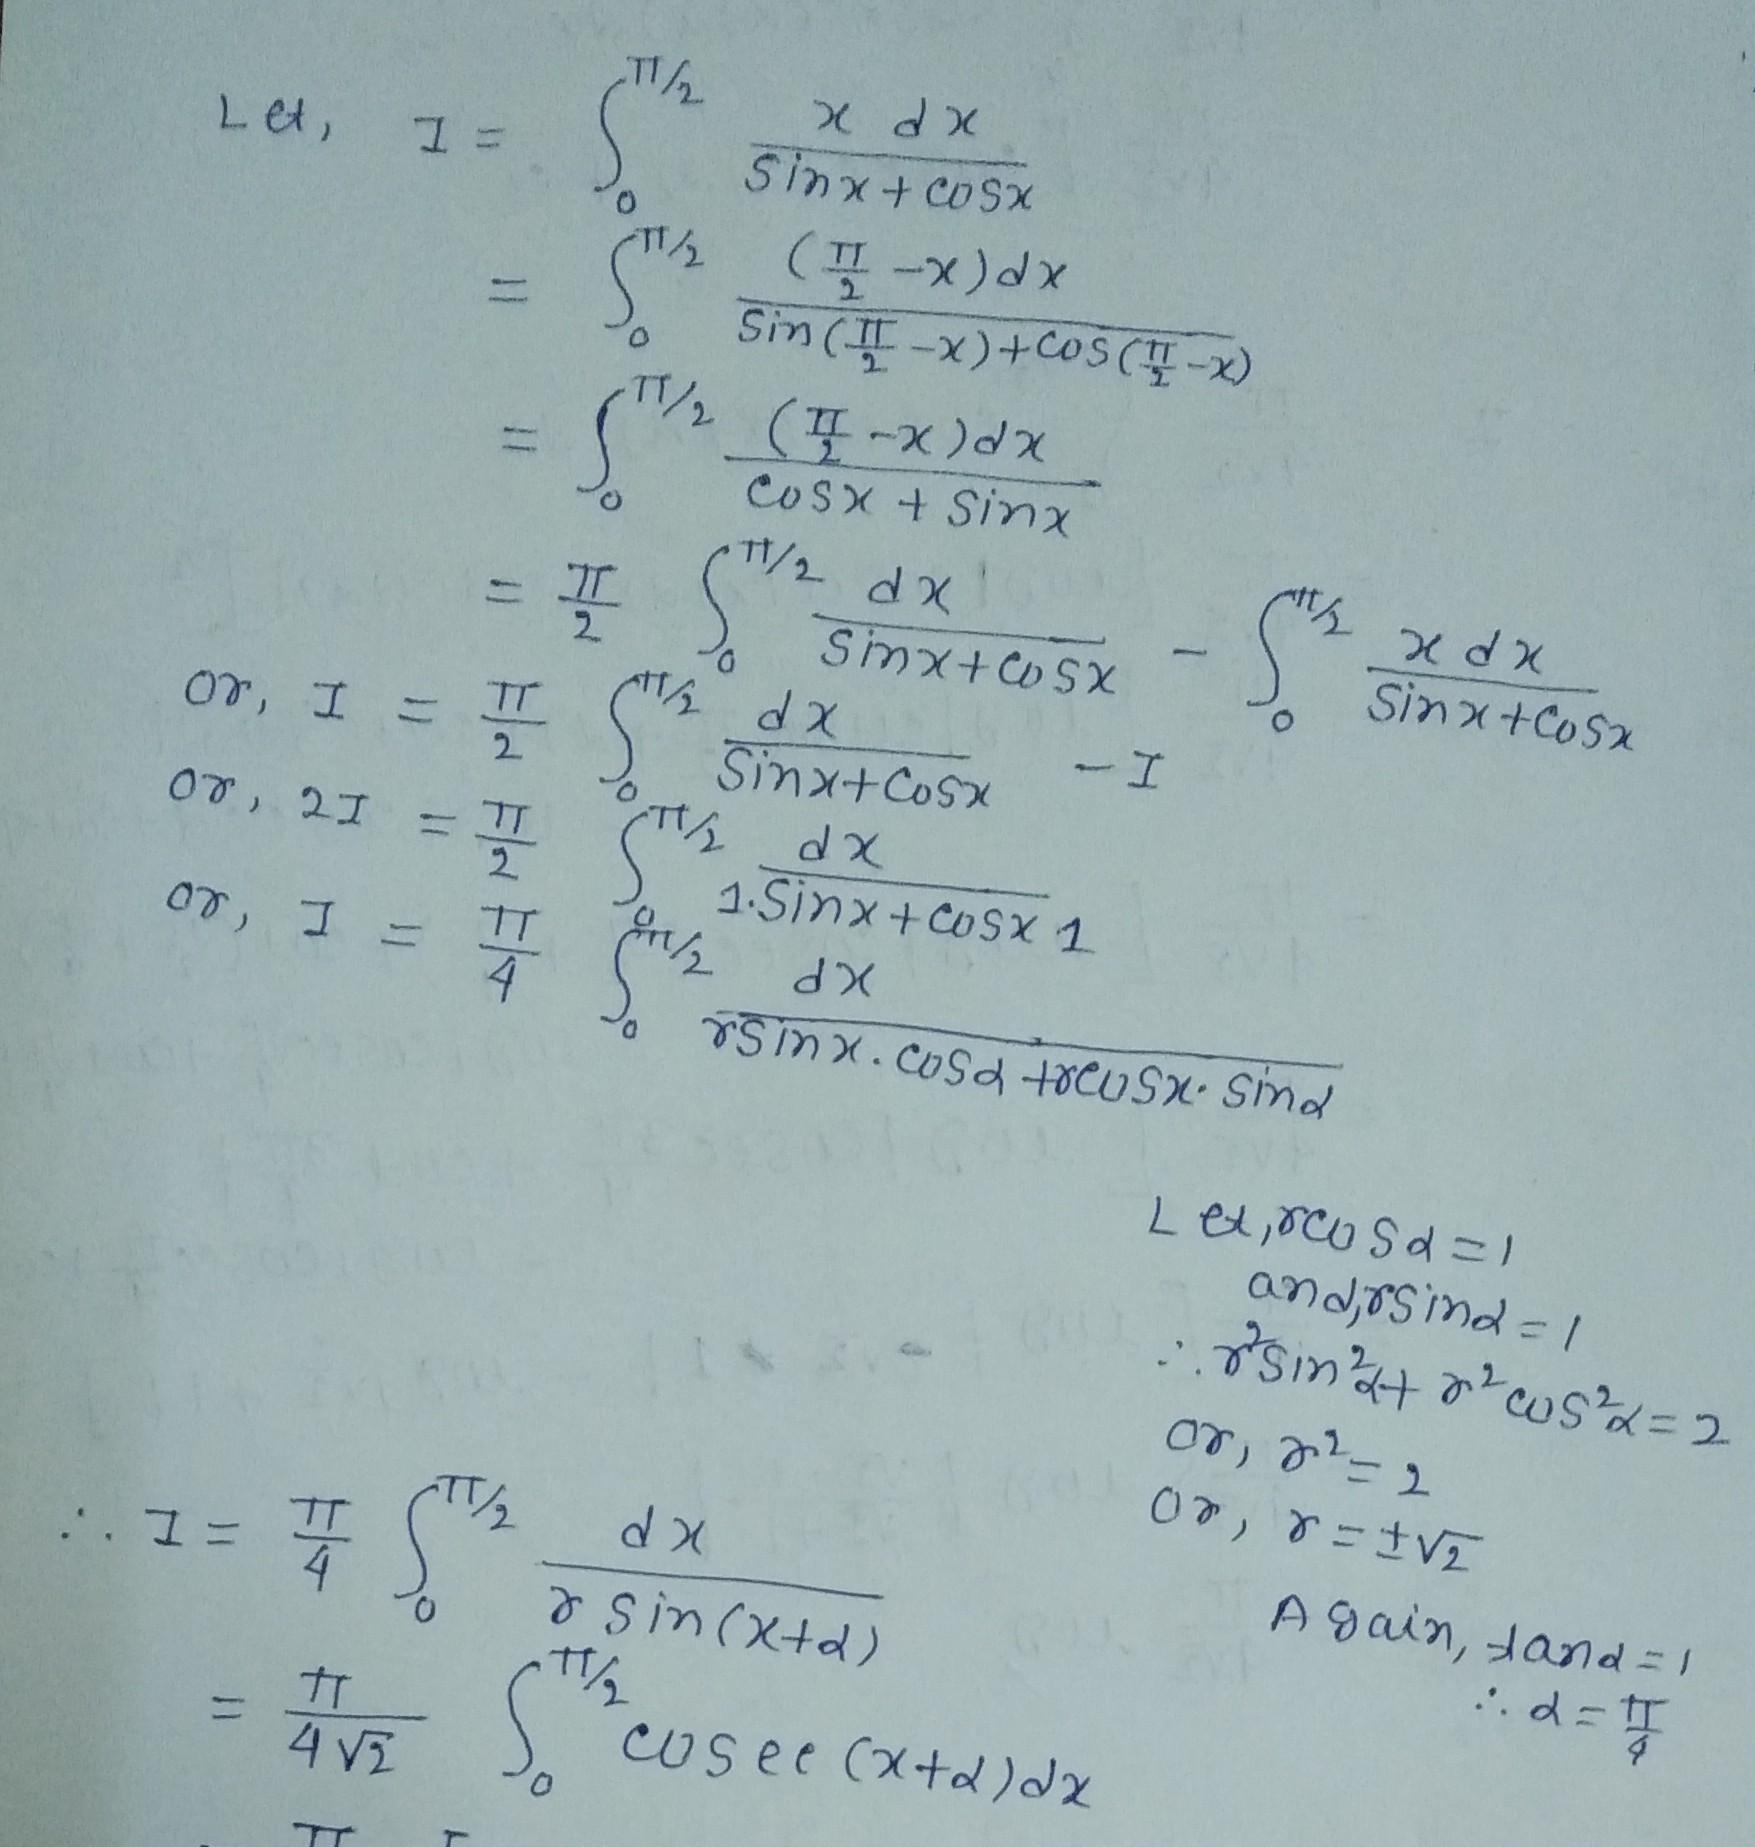 Let, I = ∫₀^{π/2} x dx / (sinx + cosx)
= ∫₀^{π/2} (π/2 - x)dx / (sin(π/2 - x) + cos(π/2 - x))
= ∫₀^{π/2} (π/2 - x)dx / (cosx + sinx)
= π/2 ∫₀^{π/2} dx / (sinx + cosx) - ∫₀^{π/2} x dx / (sinx + cosx)
or, I = π/2 ∫₀^{π/2} dx / (sinx + cosx) - I
or, 2I = π/2 ∫₀^{π/2} dx / (1.sinx + cosx 1)
or, I = π/4 ∫₀^{π/2} dx / (rsinx.cosα + rcosx.sinα)
Let, rcosα = 1
and, rsinα = 1
∴ r²sin²α + r²cos²α = 2
or, r² = 2
or, r = ±√2
Again, tanα = 1
∴ α = π/4
∴ I = π/4 ∫₀^{π/2} dx / (r sin(x+α))
= π/(4√2) ∫₀^{π/2} cosec(x+α)dx